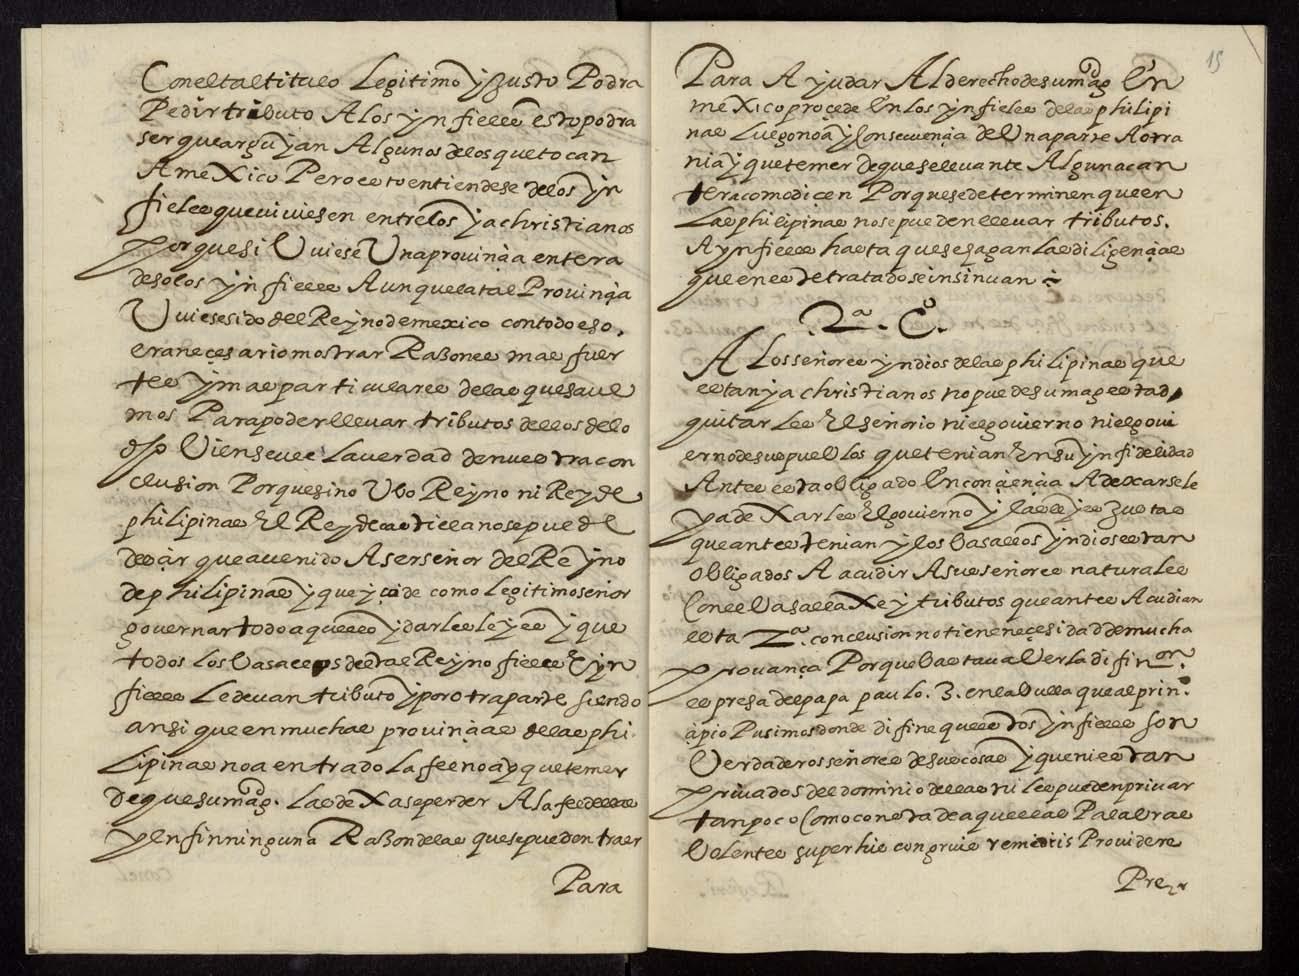 Con el tal titulo Legitimo y Justo Podra
Pedir tributo A los ynfieles esto podra
ser que arguyan Algunos de los que tocan
A meXico Pero esto entiendese de los yn
fieles que viviesen entre los ya christianos
Porque si Uviese Una provinçia entera
de solos ynfieles Aunque la tal Provinçia
Uviese sido del Reyno de mexico con todo eso.
era neçesario mostrar Rasones mas fuer
tes y mas particulares de las que save
mos Para poder llevar tributos dellos de lo
dho Vien se vee La verdad de nuestra con
clusion Porque si no Ubo Reyno ni Rey de
philipinas El Rey de castilla no se puede
deçir que a venido A ser señor del Reyno
de philipinas y que puede como Legitimo señor
governar todo aquello y darles leyes y que
todos los Vasallos de tal Reyno fieles E yn
fieles Le devan tributo y por otra parte siendo
ansi que en muchas provinçias de las phi
Lipinas no a entrado La fee no ay que temer
De que su magd. Las deXase perder A la fee dellas
y en fin ninguna Rason de las que se pueden traer
Para
15
Para Ayudar Al derecho de su magd En
meXico proçede En los ynfieles de las philipi
nas Luego no ay Consecuençia de Una parte A otra
ni ay que temer de que se levante Alguna can
tera como diçen Porque se determinen que en
Las philipinas no se pueden llevar tributos.
A ynfieles hasta que se hagan Las diligençias
que en este tratado se insinuan
.2a. Co.
A Los señores yndios de las philipinas que
estan ya christianos no puede su magestad
quitarles El señorio ni el govierno ni el govi
erno de sus pueblos que tenian En su ynfidelidad
Antes esta obligado En conçiençia A dexarsele
y a deXarles El govierno y las leyes Justas
que antes tenian y los Vasallos yndios estan
Obligados A acudir A sus señores naturales
Con el VasallaXe y tributos que antes Acudian
esta 2a. conclusion no tiene neçesidad de mucha
provança Porque bastava Ver la difinon.
espresa del papa paulo. 3. en la Vulla que al prin.
çipio Pusimos donde difine que estos ynfieles son
Verdaderos señores de sus cosas y que ni estan
privados del dominio dellas ni les pueden privar
tanpoco Como consta de aquellas Palabras
Volentes super his congruis remediis Providere
Pre